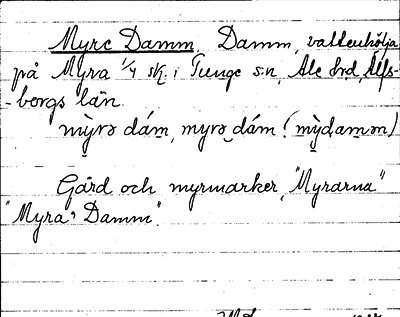 Myre Damm, Damm, vattenhölja
på Myra 1/4 sk. i Tunge s:n, Ale hd, Älfs-
-borgs län.
mẏ̱rə dám, myrə dám (mẏ̱damən)
Gård och myrmarker, "Myrarna"
"Myra Damm".